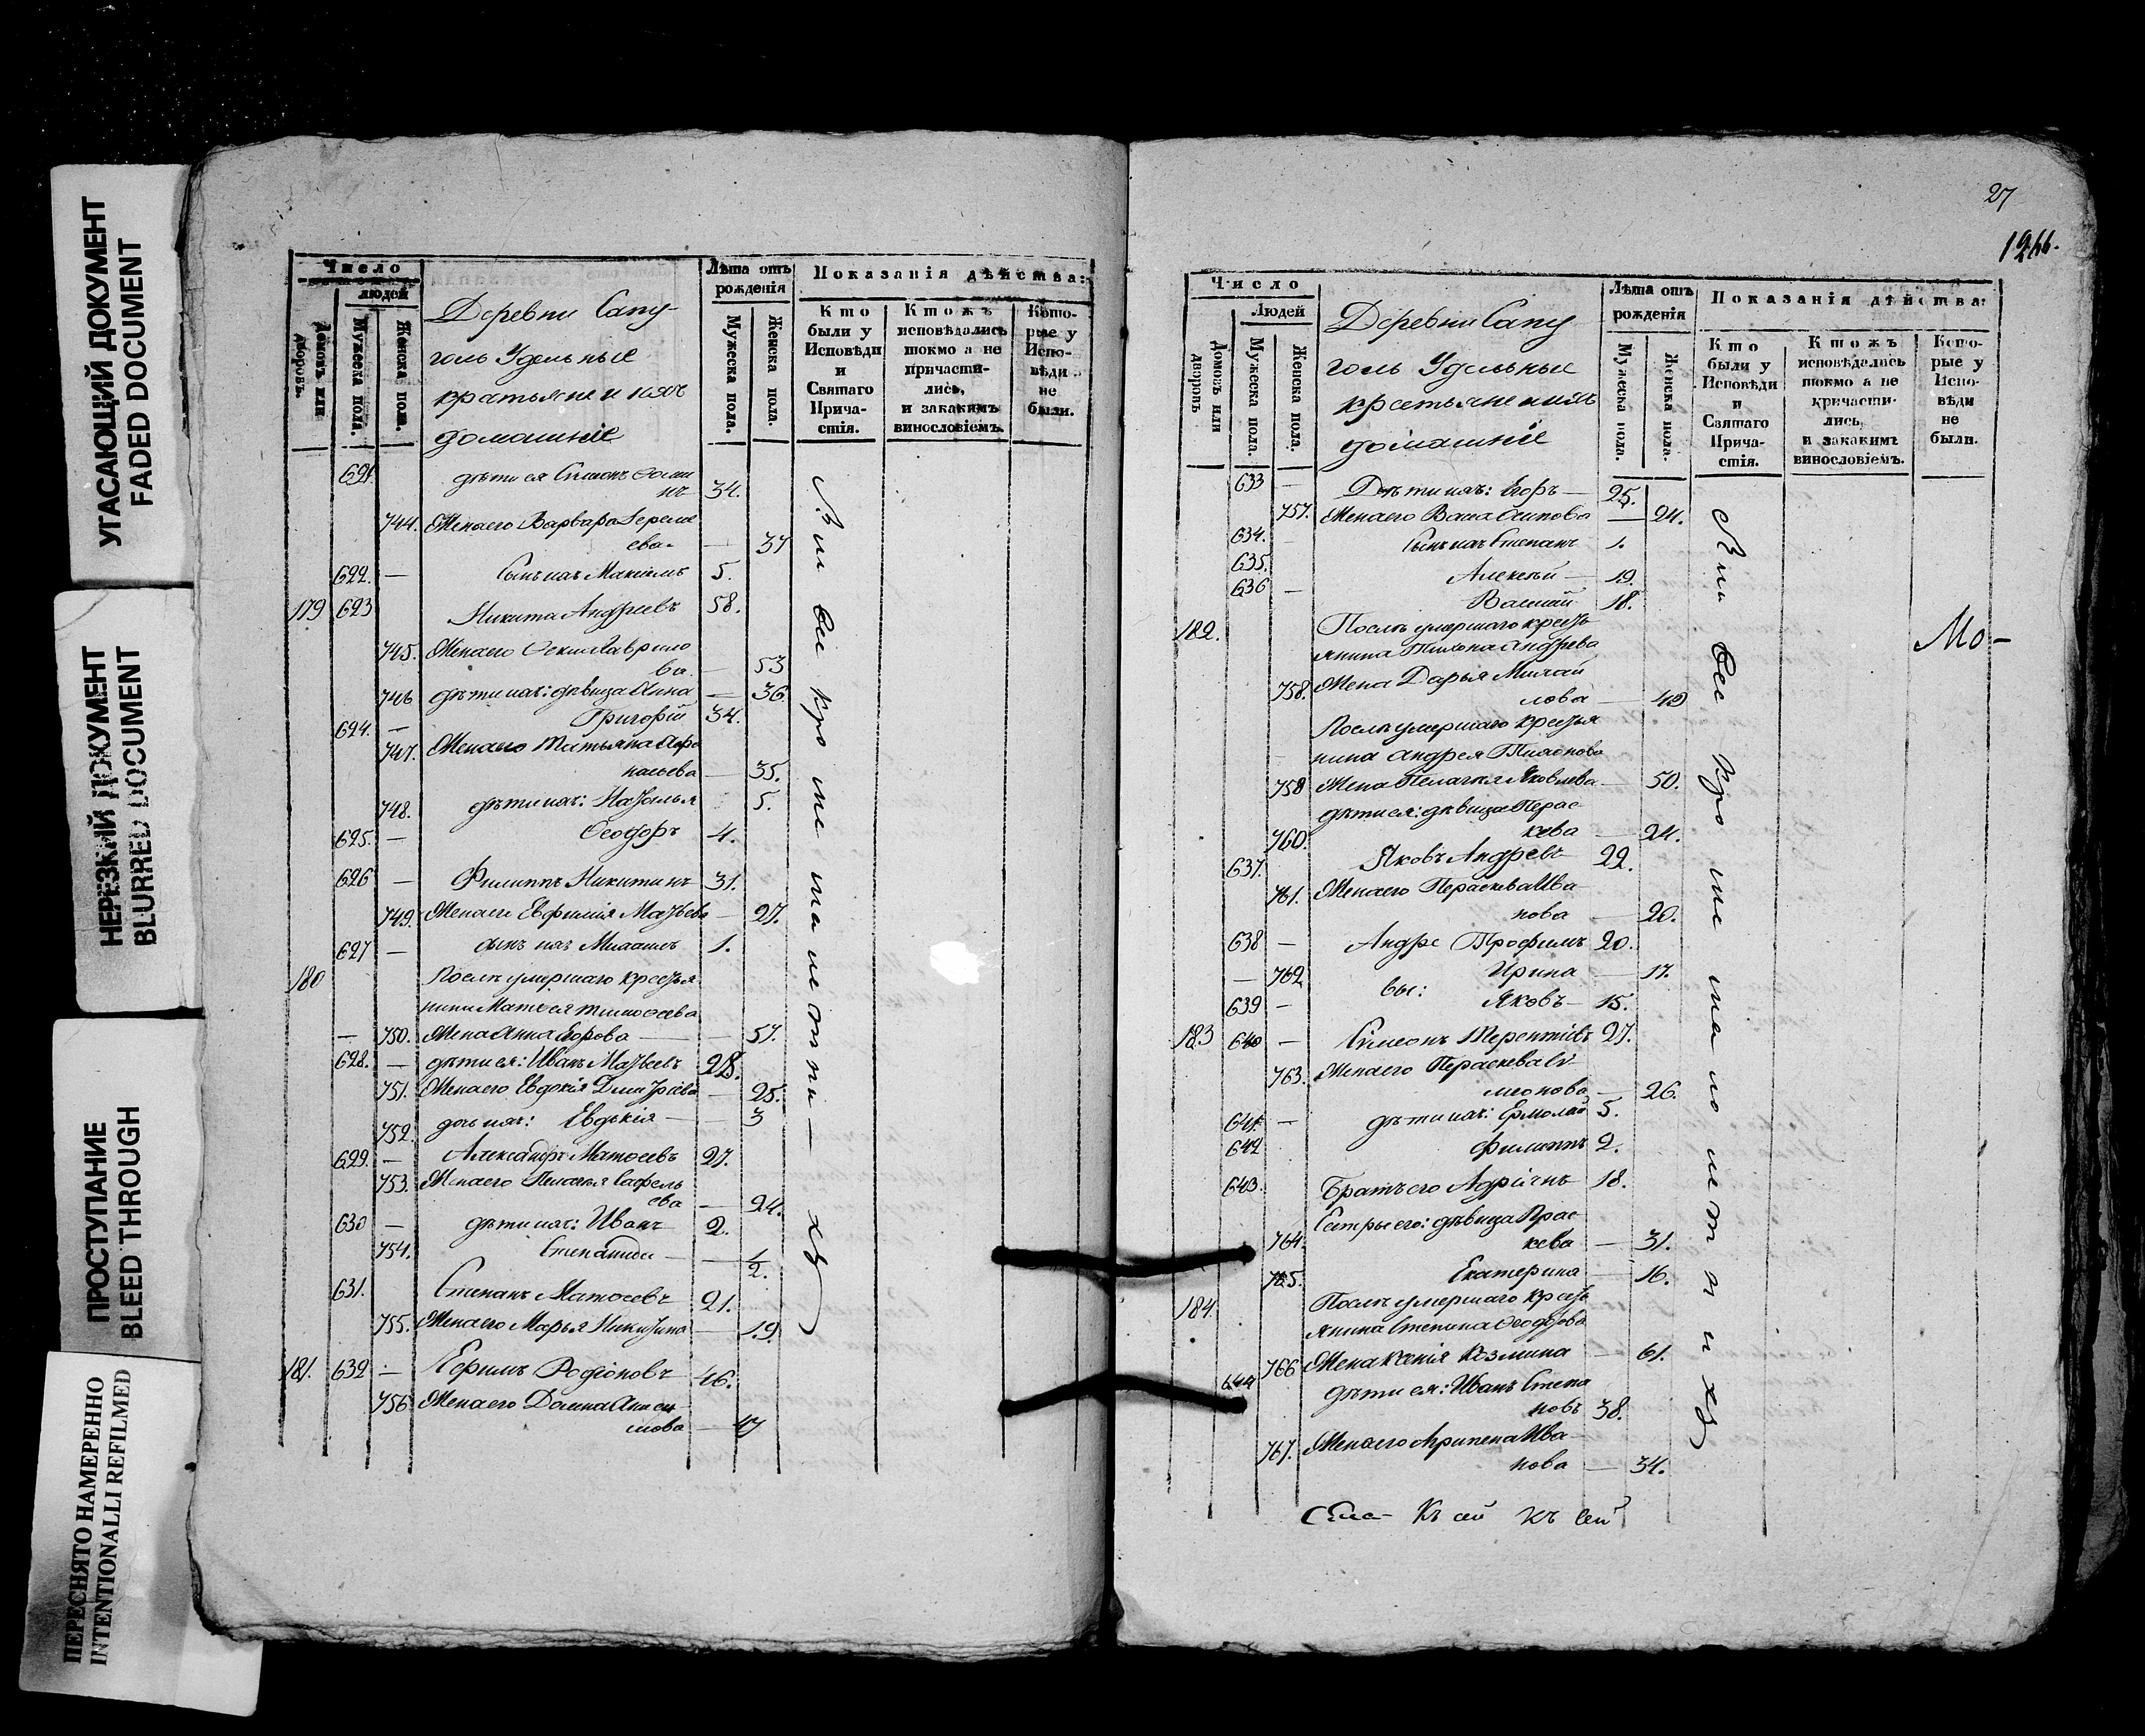 УГАСАЮЩИЙ ДОКУМЕНТ
FADED DOCUMENT
НЕРЕЗКИЙ ДОКУМЕНТ
BLURRED DOCUMENT
ПРОСТУПАНИЕ
BLEED THROUGH
ПЕРЕСНЯТО НАМЕРЕННО
INTENTIONALLI REFILMED
Число
людей
Домовъ или дворовъ.
Мужеска пола.
Женска пола.
Деревни Сапу-
голь Удельные
домашніе
Лѣта отъ рожденія
Мужеска пола.
Женска пола.
Показанія дѣйства:
Кто были у Исповѣди и Святаго Прича-стія.
Ктожъ исповѣдались токмо а не причасти-лись, и закакимъ винословіемъ.
Кото-рые у Испо-вѣди не были.
621
34.
744. Жена его Варвара
ева — 37
622. — Сынъ ихъ Максимъ 5.
179 623 Никита Андреевъ 58.
745. Жена его Гаврило
ва — 53
746 дѣти ихъ: дѣвица Анна — 36.
624. — Григорій 34.
747. Жена его Татьяна Афа
насьева — 35.
748. дѣти ихъ: Наталья 5.
625. — Ѳеодоръ 4.
626 — Филиппъ Никитинъ 31.
749. Жена его Евфимія Матвеева — 27.
627 — сынъ ихъ 1.
180 Послѣ умершаго крестья
нина Матвея Тимофеева
— 750. Жена Анна Егорова — 57.
628. — дѣти ея: Иванъ Матвеевъ 28.
751. Жена его Евдокія Дмитріева — 25.
752. дочь ихъ: Евдокія — 3
629. — Александръ Матвеевъ 27.
753. Жена его Пелагея Савель
ева — 24.
630 — дѣти ихъ: Иванъ 2.
754. Степанида — 1/2.
631. Степанъ Матвеевъ 21.
755. Жена его Марья Никитина — 19
181. 632 — Ефимъ Родіоновъ 46.
756 Жена его Домна
мова — 47
27
1266.
Число
Людей
Домовъ или дворовъ
Мужеска пола.
Женска пола.
Деревни Сапу
голь Удельные
крестьяне и ихъ
домашніе
Лѣта отъ рожденія
Мужеска пола.
Женска пола.
Показанія дѣйства:
Кто были у Исповѣди и Святаго Прича-стія.
Ктожъ исповѣдались токмо а не кричасти-лись, и закакимъ винословіемъ.
Кото-рые у Испо-вѣди не были.
633 — Дѣти ихъ: Егоръ — 25.
757. Жена его Васа Осипова — 24.
634. — Сынъ ихъ Степанъ 1.
635. Алексѣй — 19.
636 — Василій 18.
182. Послѣ умершаго кресть
янина Тихона Андреева
Мо-
758. Жена Дарья Михай
лова — 49
Послѣ умершаго крестья
нина Андрея Тихонова
758 Жена Пелагея Яковлева — 50.
дѣти ея: дѣвица Парас
760. кева — 24.
637. Яковъ Андреевъ 22.
761. Жена его Параскева Ива
нова — 20.
638 — Андре Трофимъ 20.
— 762 Ирина — 17.
639 — вы: Яковъ — 15.
183 640 — Симеонъ Терентіевъ 27.
763. Жена его Параскева Си
меонова — 26.
641. — дѣти ихъ: Ермолай 5.
642 Филиппъ 2.
643. Братъ его Адріанъ 18.
Сестры его: дѣвица Прас
764. кева — 31.
765. Екатерина — 16.
184. Послѣ умершаго кресть
янина Степана Ѳеодорова
766 Жена Ксенія Козмина — 61.
644 дѣти ея: Иванъ Степа
новъ 38.
767. Жена его Агрипена Ива
нова — 34.